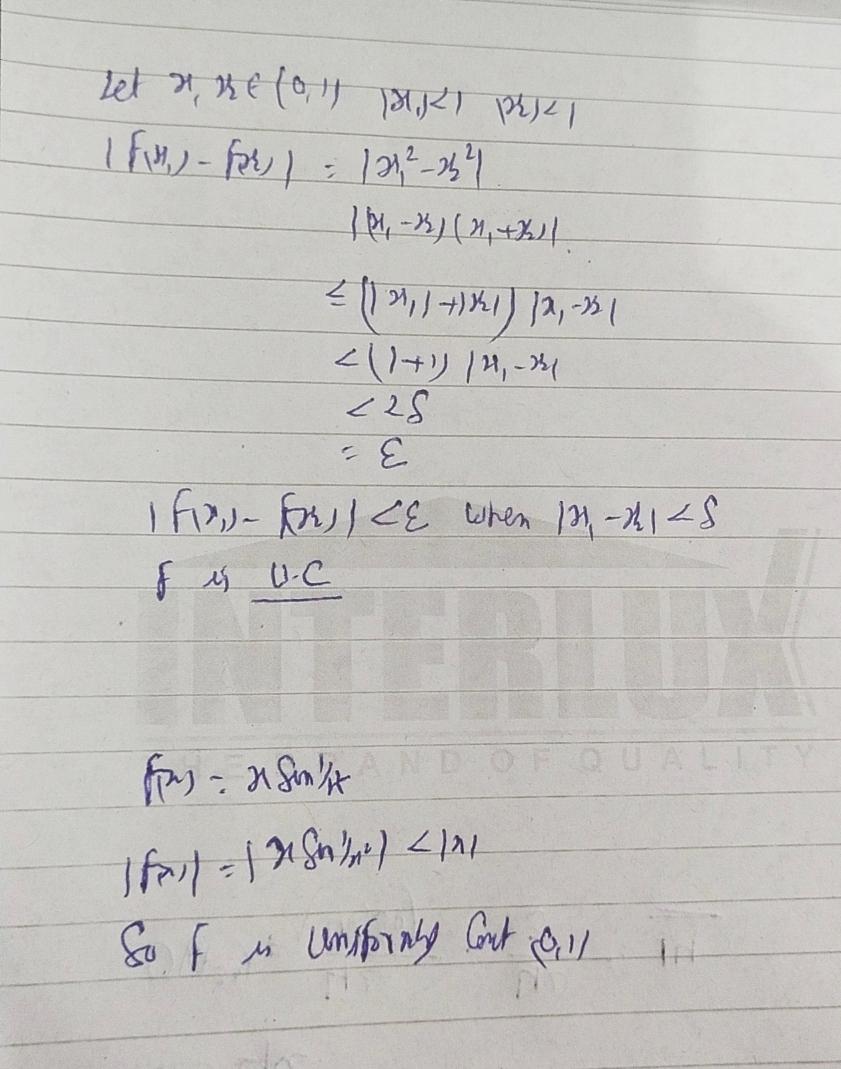 Let x₁, x₂ ∈ (0,1) |x₁|<1 |x₂|<1
|f(x₁) - f(x₂)| = |x₁² - x₂²|
|(x₁ - x₂)(x₁ + x₂)|
≤ (|x₁| + |x₂|) |x₁ - x₂|
< (1+1) |x₁ - x₂|
< 2δ
= ε
|f(x₁) - f(x₂)| < ε when |x₁ - x₂| < δ
f is U.C
INTERLUX
THE BRAND OF QUALITY
f(x) = x Sin 1/x
|f(x)| = |x Sin 1/x²| < |x|
So f is Uniformly Cont (0,1)